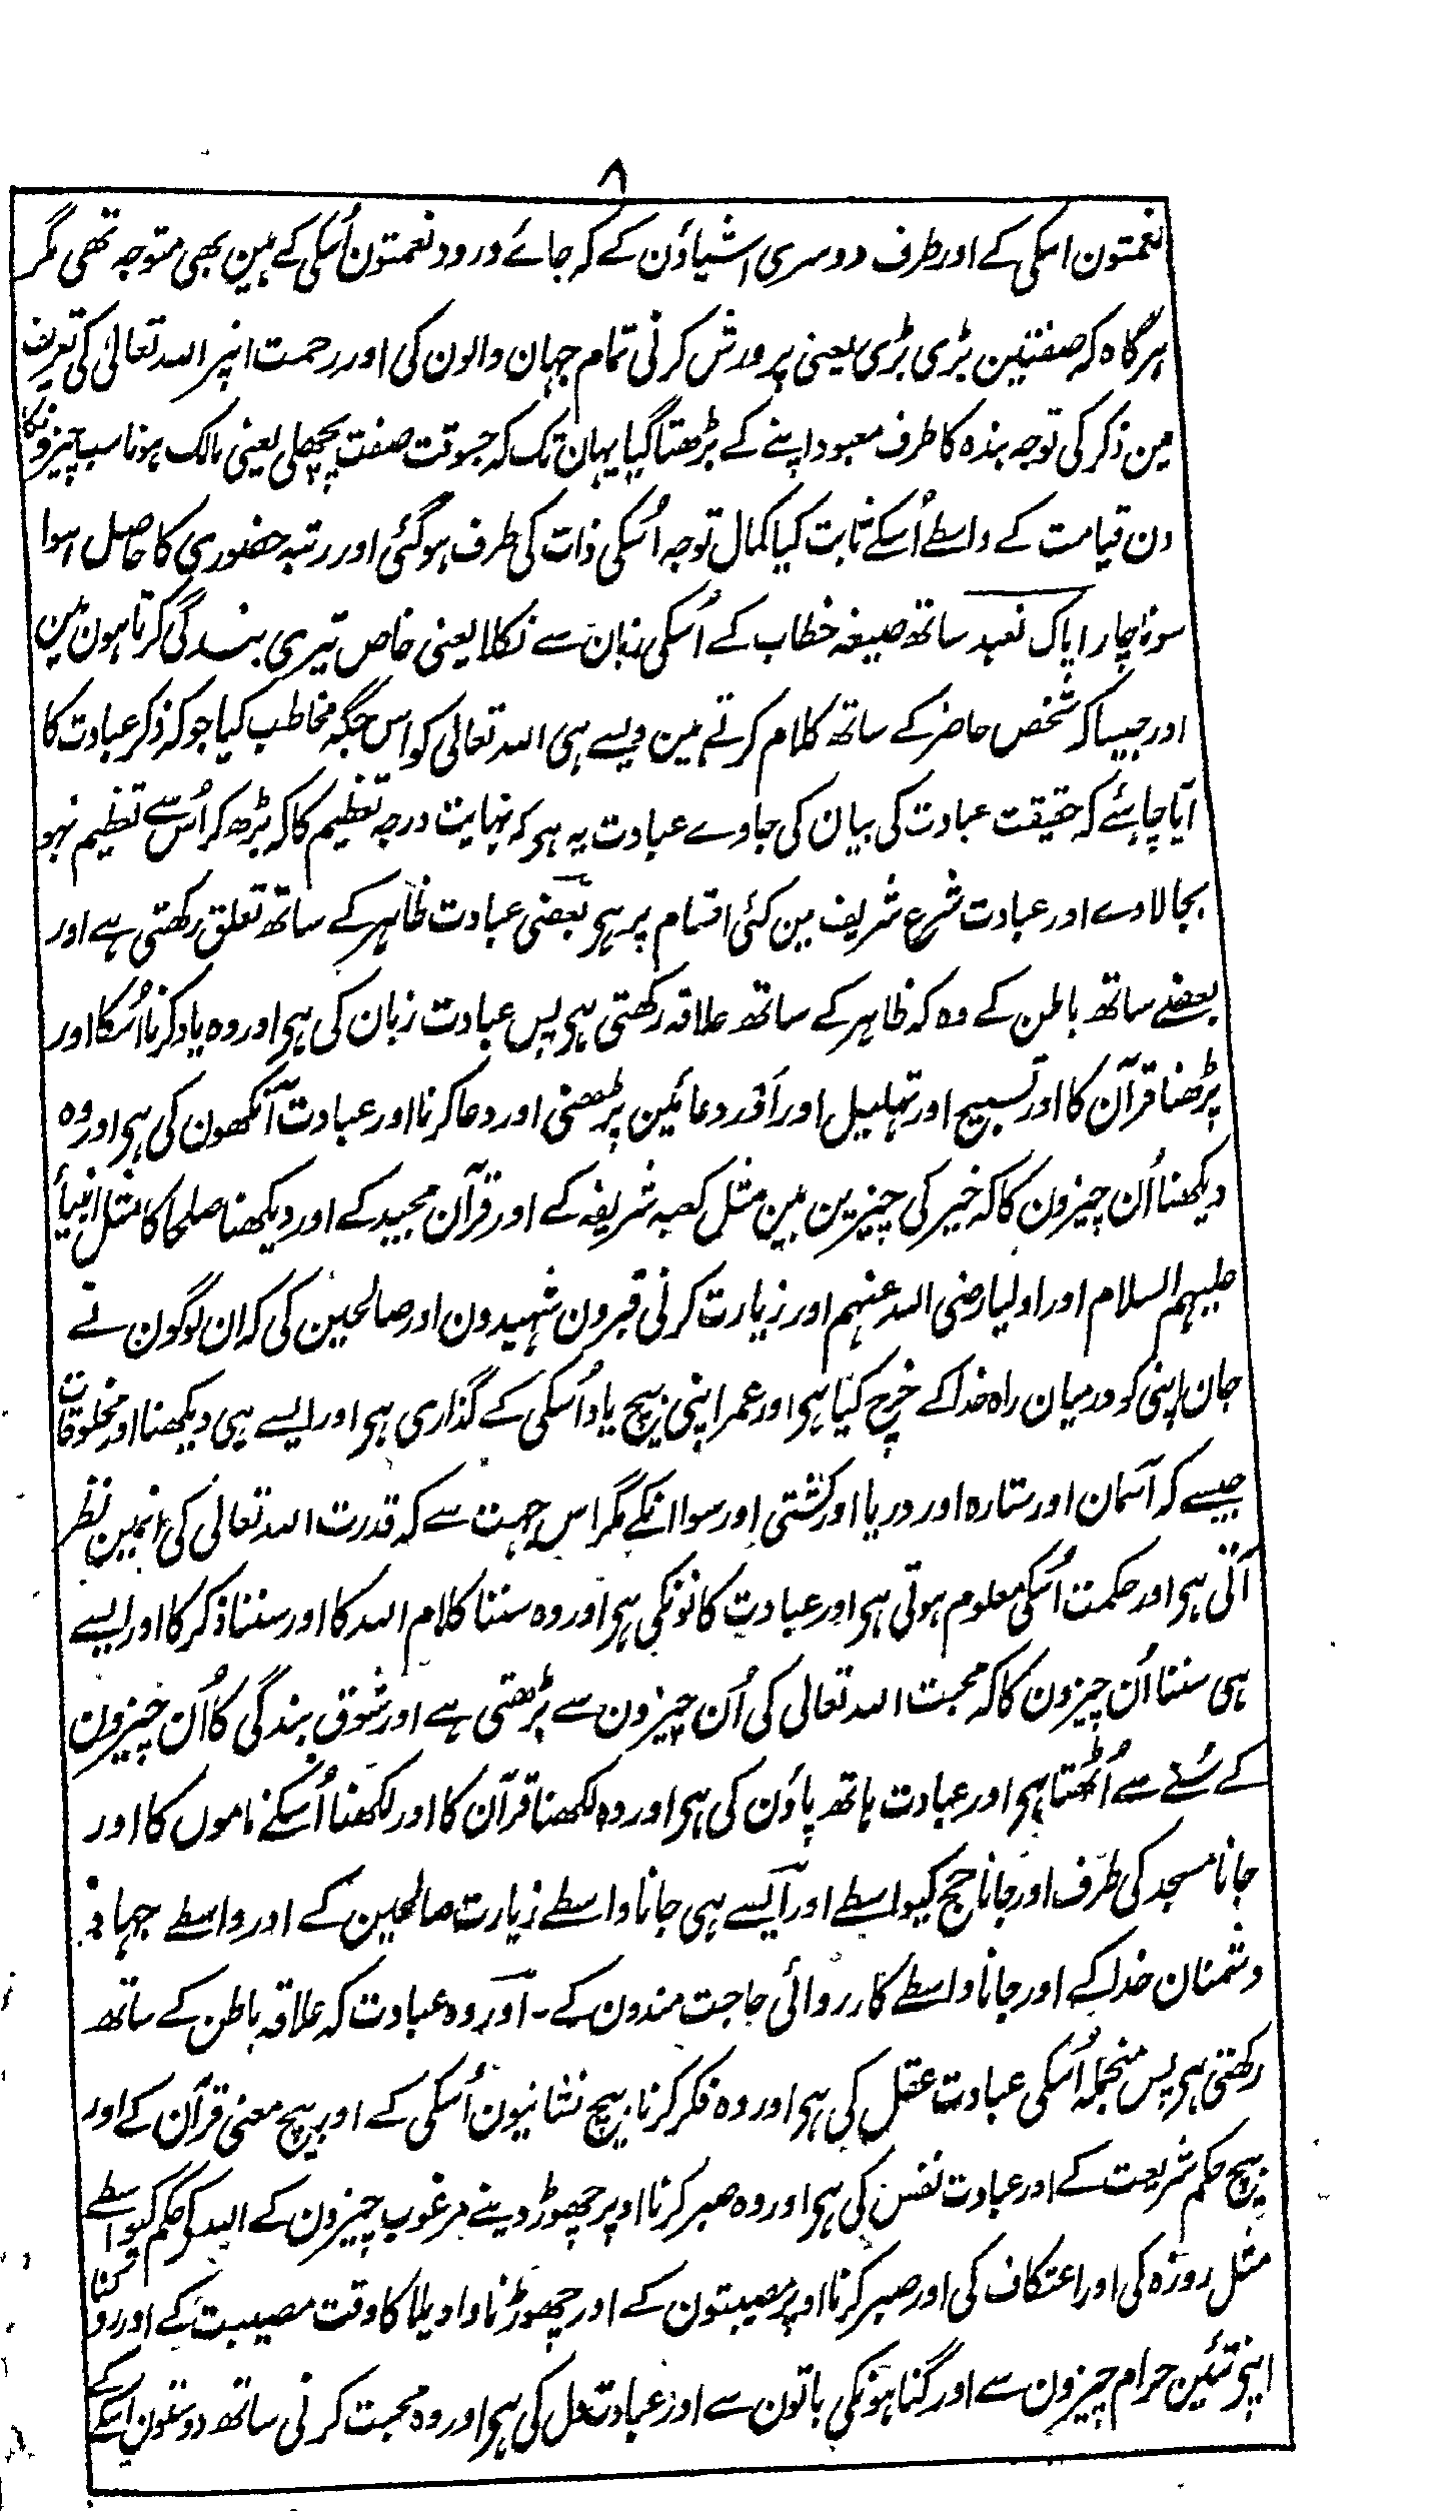 ۸
نعمتون اسکی کے اور طرف دوسری اشیاؤن کے کہ جائے ورود نعمتون اُسکی کے ہین بھی متوجہ تھی مگر
ہرگاہ کہ صفتین بڑی بڑی یعنی پرورش کرنی تمام جہان والون کی اور رحمت اپنر اللہ تعالیٰ کی تعریف
مین ذکر کی توجہ بندہ کا طرف معبود اپنے کے بڑھتا گیا یہان تک کہ جسوقت صفت پچھلی یعنی مالک ہونا سب چیزونکا
دن قیامت کے واسطے اُسکے ثابت کیا کمال توجہ اُسکی ذات کی طرف ہوگئی اور رتبہ حضوری کا حاصل ہوا
سو ناچار ایاک نعبد ساتھ صیغہ خطاب کے اُسکی زبان سے نکلا یعنی خاص تیری بندگی کرتا ہون مین
اور جیسا کہ شخص حاضر کے ساتھ کلام کرتے ہین ویسے ہی اللہ تعالی کو اس جگہ مخاطب کیا جو کہ ذکر عبادت کا
آیا چاہئے کہ حقیقت عبادت کی بیان کی جاوے عبادت یہ ہی کہ نہایت درجہ تعظیم کا کہ بڑھ کر اُس سے تعظیم نہو
بجالاوے اور عبادت شرع شریف مین کئی اقسام پر ہی بعضی عبادت ظاہر کے ساتھ تعلق رکھتی ہے اور
بعضے ساتھ باطن کے وہ کہ ظاہر کے ساتھ علاقہ رکھتی ہی پس عبادت زبان کی ہی اور وہ یاد کرنا اُسکا اور
پڑھنا قرآن کا اور تسبیح اور تہلیل اور اَوْر دعائین پڑھنی اور دعا کرنا اور عبادت آنکھون کی ہی اور وہ
دیکھنا اُن چیزون کا کہ خیر کی چیزین ہین مثل کعبہ شریفہ کے اور قرآن مجید کے اور دیکھنا صلحا کا مثل انبیأ
علیہم السلام اور اولیا رضی اللہ عنہم اور زیارت کرنی قبرون شہیدون اور صالحین کی کہ ان لوگون نے
جان اپنی کو درمیان راہ خدا کے خرچ کیا ہی اور عمر اپنی بیچ یاد اُسکی کے گذاری ہی اور ایسے ہی دیکھنا اور مخلوقات
جیسے کہ آسمان اور ستارہ اور دریا اور کشتی اور سوا انکے مگر اس جہت سے کہ قدرت اللہ تعالی کی انمین نظر
آتی ہی اور حکمت اُسکی معلوم ہوتی ہی اور عبادت کانونکی ہی اور وہ سننا کلام اللہ کا اور سننا ذکر کا اور ایسے
ہی سننا اُن چیزون کا کہ محبت اللہ تعالی کی اُن چیزون سے بڑھتی ہے اور شوق بندگی کا اُن چیزون
کے سُننے سے اُٹھتا ہی اور عبادت ہاتھ پاؤن کی ہی اور وہ لکھنا قرآن کا اور لکھنا اُسکے ناموں کا اور
جانا مسجد کی طرف اور جانا حج کیواسطے اور ایسے ہی جانا واسطے زیارت صالحین کے اور واسطے جہاد
دشمنان خدا کے اور جانا واسطے کارروائی حاجت مندون کے۔ اور وہ عبادت کہ علاقہ باطن کے ساتھ
رکھتی ہی پس منجملہ اُسکی عبادت عقل کی ہی اور وہ فکر کرنا بیچ نشانیون اُسکی کے اور بیچ معنی قرآن کے اور
بیچ حکم شریعت کے اور عبادت نفس کی ہی اور وہ صبر کرنا اوپر چھوڑ دینے مرغوب چیزون کے اللہ کو حکم کیواسطے
مثل روزہ کی اور اعتکاف کی اور صبر کرنا اوپر مصیبتون کے اور چھوڑنا واویلا کا وقت مصیبت کے اور روکنا
اپنی تئین حرام چیزون سے اور گناہونکی باتون سے اور عبادت دل کی ہی اور وہ محبت کرنی ساتھ دوستون اسکے کے